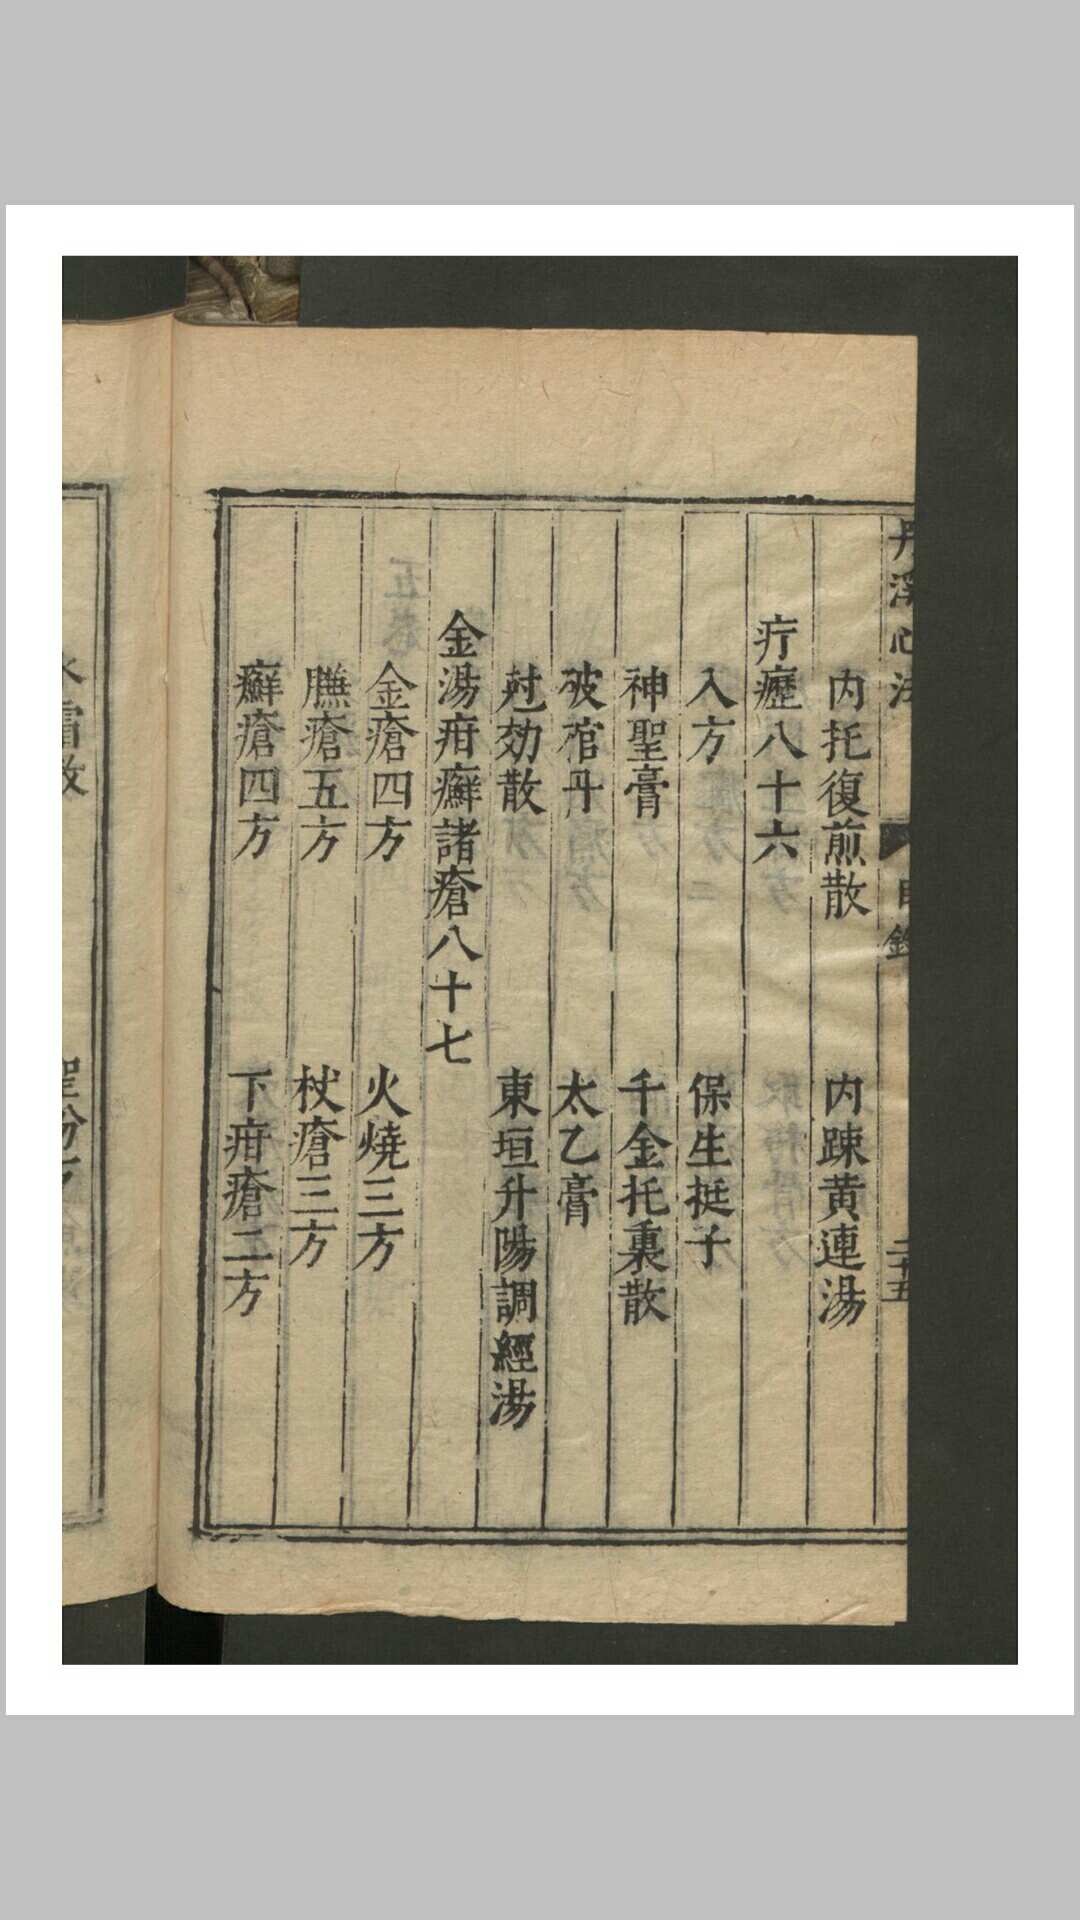 丹溪心法 目錄 二十五
内托復煎散 内踈黄連湯
疔癧八十六
入方 保生挺子
神聖膏 千金托裏散
破棺丹 太乙膏
尅効散 東垣升陽調經湯
金湯疳癬諸瘡八十七
金瘡四方 火燒三方
臁瘡五方 杖瘡三方
癬瘡四方 下疳瘡二方